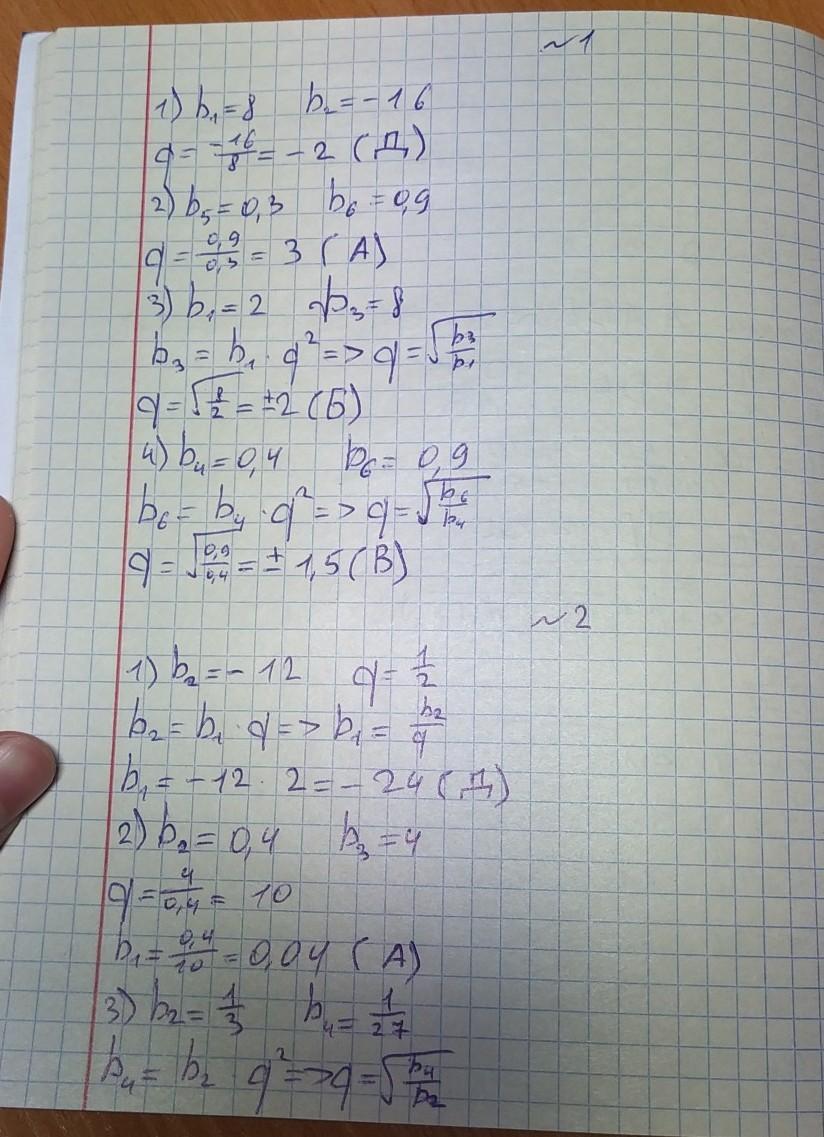 ~1
1) b₁=8 b₂=-16
q= -16/8 = -2 (Д)
2) b₅=0,3 b₆=0,9
q= 0,9/0,3 = 3 (А)
3) b₁=2 b₃=8
b₃ = b₁ · q² => q=√(b₃/b₁)
q=√(8/2) = ±2 (Б)
4) b₄=0,4 b₆= 0,9
b₆= b₄ · q² => q=√(b₆/b₄)
q=√(0,9/0,4) = ± 1,5 (В)
~2
1) b₂=- 12 q= 1/2
b₂= b₁ · q => b₁ = b₂/q
b₁ = -12 · 2 = - 24 (Д)
2) b₂= 0,4 b₃=4
q= 4/0,4 = 10
b₁= 0,4/10 = 0,04 (А)
3) b₂= 1/3 b₄= 1/27
b₄ = b₂ · q² => q=√(b₄/b₂)